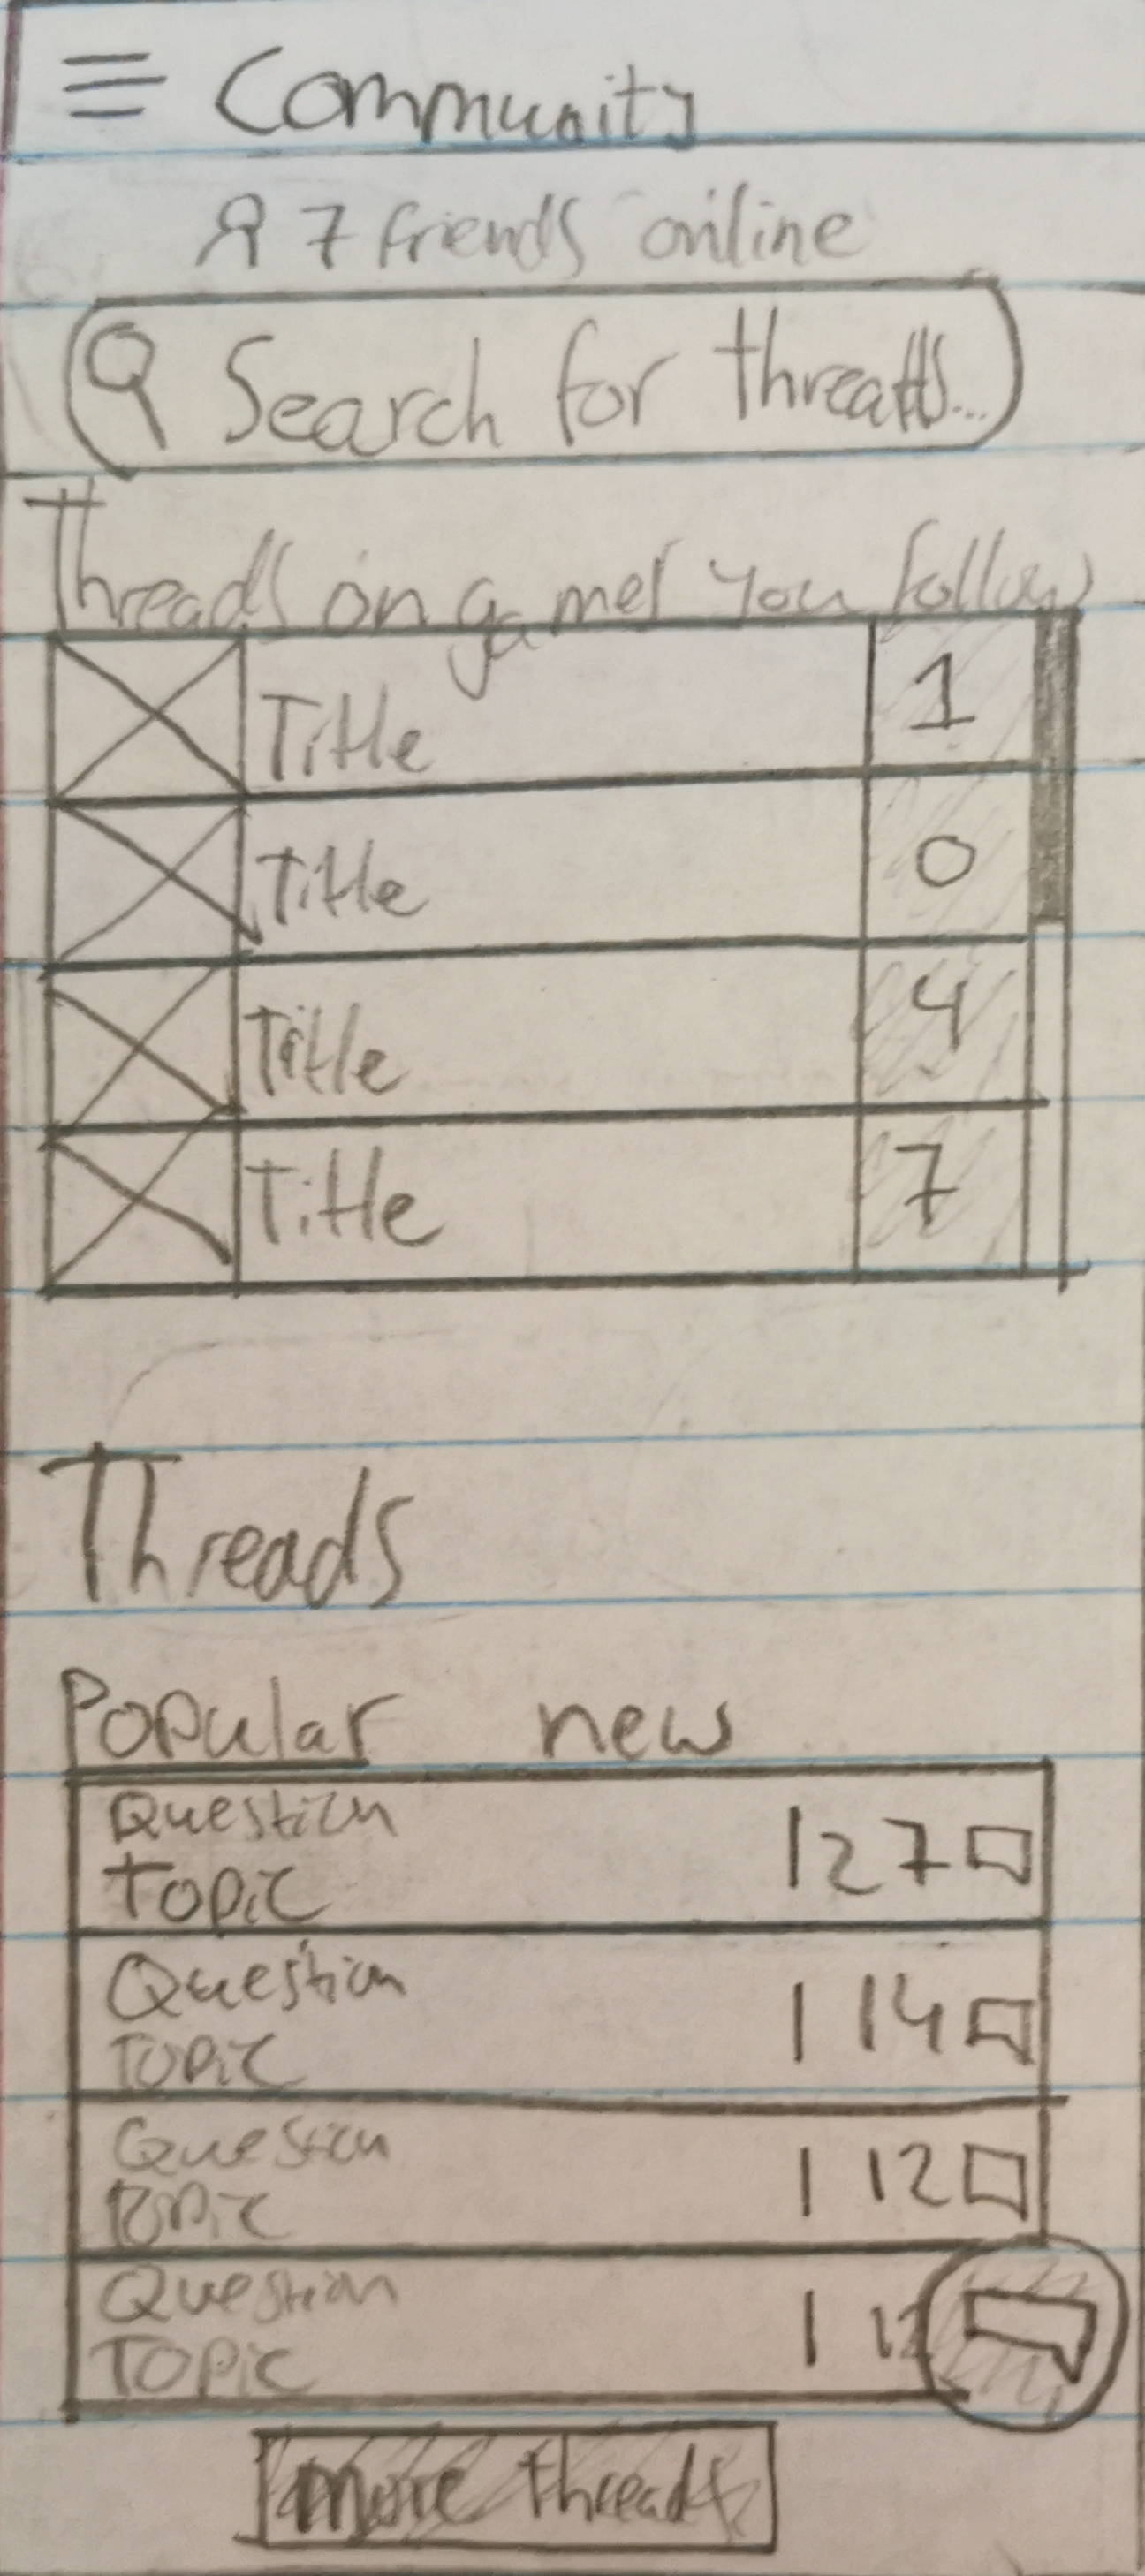 Community
7 friends online
Search for threads...
Threads on games you follow
Title 1
Title 0
Title 4
Title 7
Threads
Popular new
Question
Topic 127
Question
Topic 114
Question
Topic 112
Question
Topic 1 1
more threads